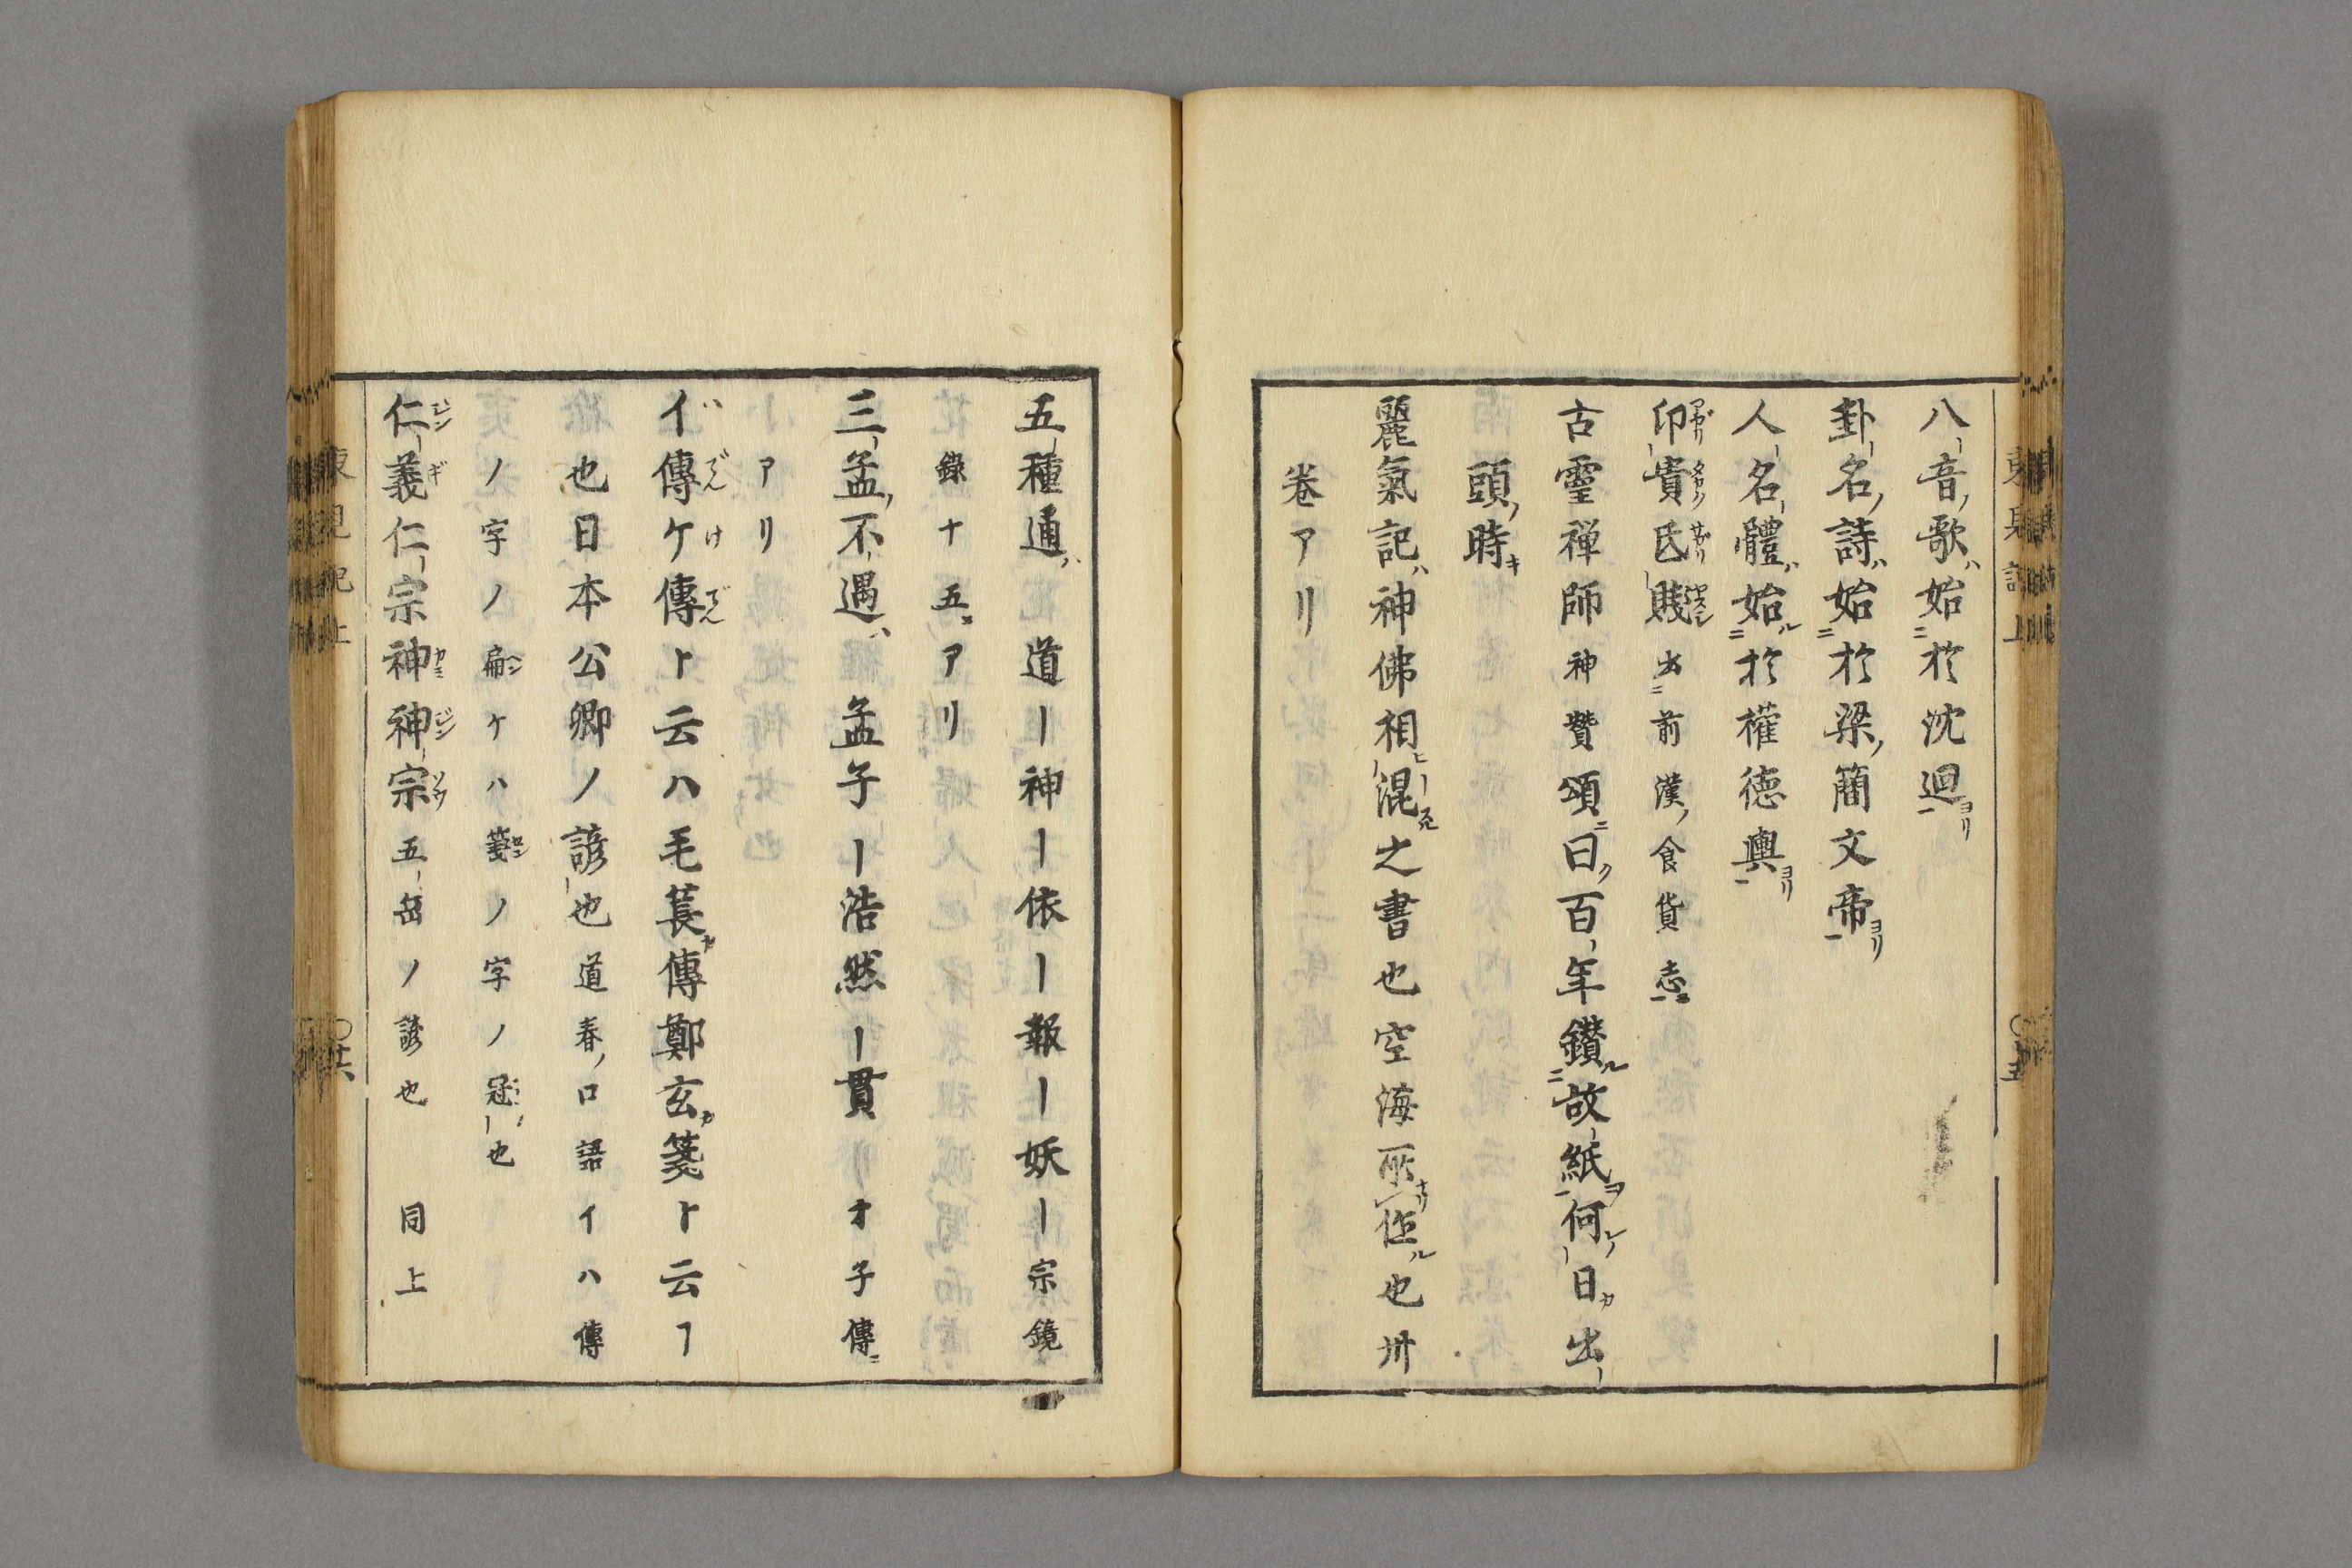 八音ノ歌ハ始於沈迴ヨリ
卦名ノ詩ハ始於梁ノ簡文帝ヨリ
人名體ハ始ル於權徳輿ヨリ
印貴氐賎 出前漢ノ食貨志
古霊禅師神賛頌ニ曰ク百年鑚ル故紙ヲ何レノ日カ出
頭ノ時キ
麗氣記ハ神佛相ヒ混之書也空海所作ル也卅
巻アリ
東見記上
五種通ハ 道ー神ー依ー報ー妖ー宗鏡
録十五ニアリ
三孟ノ不遇ハ 孟子ー浩然ー貫ーオ子傳ニ
アリ
イ傳ケ傳ト云ハ毛萇カ傳鄭玄カ箋ト云ヿ
也日本公卿ノ諺也道春ノ口語イハ傳
ノ字ノ扁ケハ箋ノ字ノ冠也
仁義仁宗神神宗五岳ノ諺也 同上
東見記上